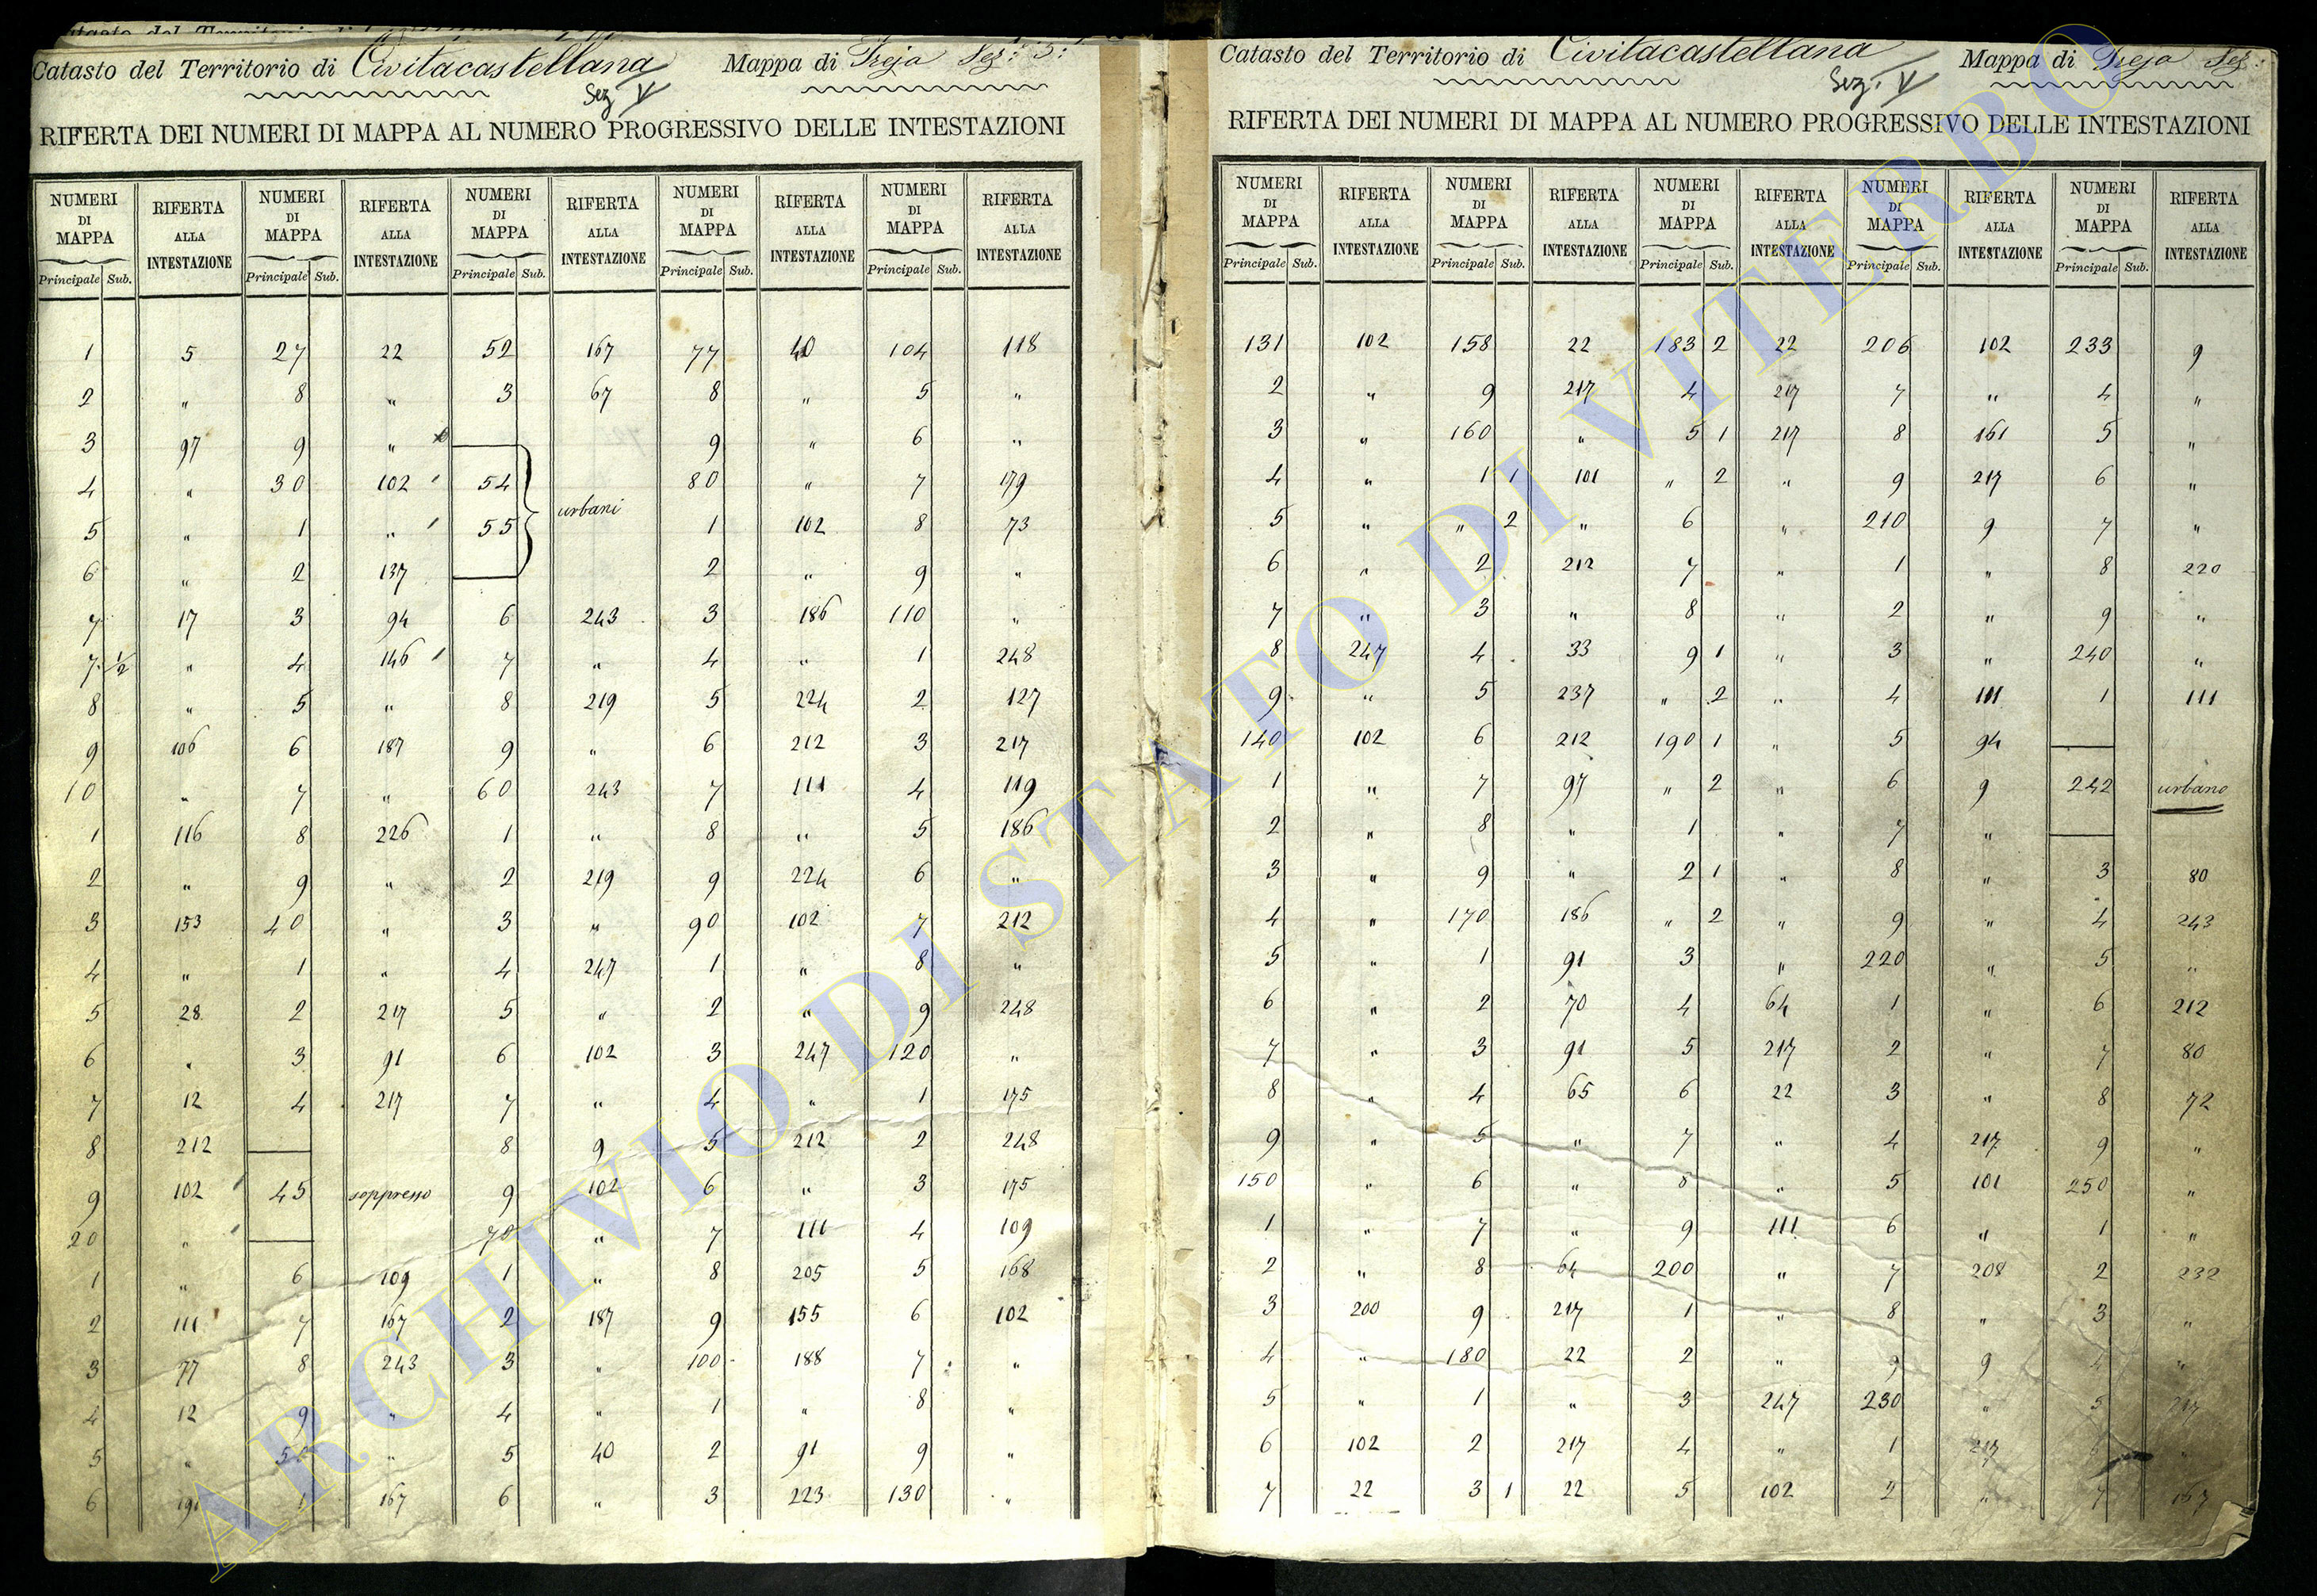 Catasto del Territorio di Civitacastellana Mappa di Treja Sez: 5:
Sez V
RIFERTA DEI NUMERI DI MAPPA AL NUMERO PROGRESSIVO DELLE INTESTAZIONI
NUMERI DI MAPPA RIFERTA ALLA INTESTAZIONE NUMERI DI MAPPA RIFERTA ALLA INTESTAZIONE NUMERI DI MAPPA RIFERTA ALLA INTESTAZIONE NUMERI DI MAPPA RIFERTA ALLA INTESTAZIONE NUMERI DI MAPPA RIFERTA ALLA INTESTAZIONE
Principale Sub. Principale Sub. Principale Sub. Principale Sub. Principale Sub.
1 5 27 22 52 167 77 40 104 118
2 " 8 " 3 67 8 " 5 "
3 97 9 " 9 " 6 "
4 " 30 102 54 urbani 80 " 7 179
5 " 1 " 55 1 102 8 73
6 " 2 137 2 " 9 "
7 17 3 94 6 243 3 186 110 "
7 1/2 " 4 146 7 " 4 " 1 248
8 " 5 " 8 219 5 224 2 127
9 106 6 187 9 " 6 212 3 217
10 " 7 " 60 243 7 111 4 119
1 116 8 226 1 " 8 " 5 186
2 " 9 " 2 219 9 224 6 "
3 153 40 " 3 " 90 102 7 212
4 " 1 " 4 247 1 " 8 "
5 28 2 217 5 " 2 " 9 248
6 " 3 91 6 102 3 247 120 "
7 12 4 217 7 " 4 " 1 175
8 212 8 9 5 212 2 248
9 102 45 soppresso 9 102 6 " 3 175
20 " 70 " 7 111 4 109
1 " 6 109 1 " 8 205 5 168
2 111 7 167 2 187 9 155 6 102
3 77 8 243 3 " 100 188 7 "
4 12 9 " 4 " 1 " 8 "
5 " 50 " 5 40 2 91 9 "
6 191 1 167 6 " 3 223 130 "
Catasto del Territorio di Civitacastellana Mappa di Treja Sez:
Sez. V
RIFERTA DEI NUMERI DI MAPPA AL NUMERO PROGRESSIVO DELLE INTESTAZIONI
NUMERI DI MAPPA RIFERTA ALLA INTESTAZIONE NUMERI DI MAPPA RIFERTA ALLA INTESTAZIONE NUMERI DI MAPPA RIFERTA ALLA INTESTAZIONE NUMERI DI MAPPA RIFERTA ALLA INTESTAZIONE NUMERI DI MAPPA RIFERTA ALLA INTESTAZIONE
Principale Sub. Principale Sub. Principale Sub. Principale Sub. Principale Sub.
131 102 158 22 183 2 22 206 102 233 9
2 " 9 217 4 217 7 " 4 "
3 " 160 " 5 1 217 8 161 5 "
4 " 1 1 101 " 2 " 9 217 6 "
5 " " 2 " 6 " 210 9 7 "
6 " 2 212 7 " 1 " 8 220
7 " 3 " 8 " 2 " 9 "
8 247 4 33 9 1 " 3 " 240 "
9 " 5 237 " 2 " 4 111 1 111
140 102 6 212 190 1 " 5 94
1 " 7 97 " 2 " 6 9 242 urbano
2 " 8 " 1 " 7 "
3 " 9 " 2 1 " 8 " 3 80
4 " 170 186 " 2 " 9 " 4 243
5 " 1 91 3 " 220 " 5 "
6 " 2 70 4 64 1 " 6 212
7 " 3 91 5 217 2 " 7 80
8 " 4 65 6 22 3 " 8 72
9 " 5 " 7 " 4 217 9 "
150 " 6 " 8 " 5 101 250 "
1 " 7 " 9 111 6 " 1 "
2 " 8 64 200 " 7 208 2 232
3 200 9 217 1 " 8 " 3 "
4 " 180 22 2 " 9 9 4 "
5 " 1 " 3 247 230 " 5 217
6 102 2 217 4 " 1 217 6 "
7 22 3 1 22 5 102 2 " 7 167
ARCHIVIO DI STATO DI VITERBO